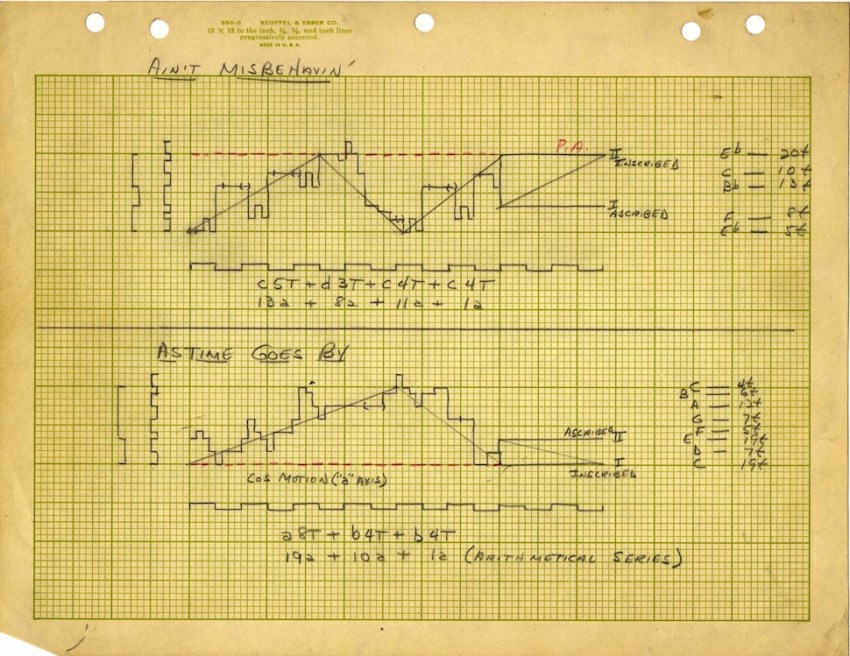 358-8 KEUFFEL & ESSER CO.
12 X 12 to the inch, ¼, ½, and inch lines
progressively accented.
MADE IN U.S.A.
AIN'T MISBEHAVIN'
P.A. II
INSCRIBED
I
ASCRIBED
Eb — 20t
C — 10t
Bb — 13t
F — 8t
Eb — 5t
c5T + d3T + c4T + c4T
13a + 8a + 11a + 1a
AS TIME GOES BY
C — 4t
B — 6t
A — 12t
G — 7t
F — 5t
E — 19t
D — 7t
C — 19t
ASCRIBED II
I
INSCRIBED
COS MOTION ("a" AXIS)
a8T + b4T + b4T
19a + 10a + 1a (ARITHMETICAL SERIES)